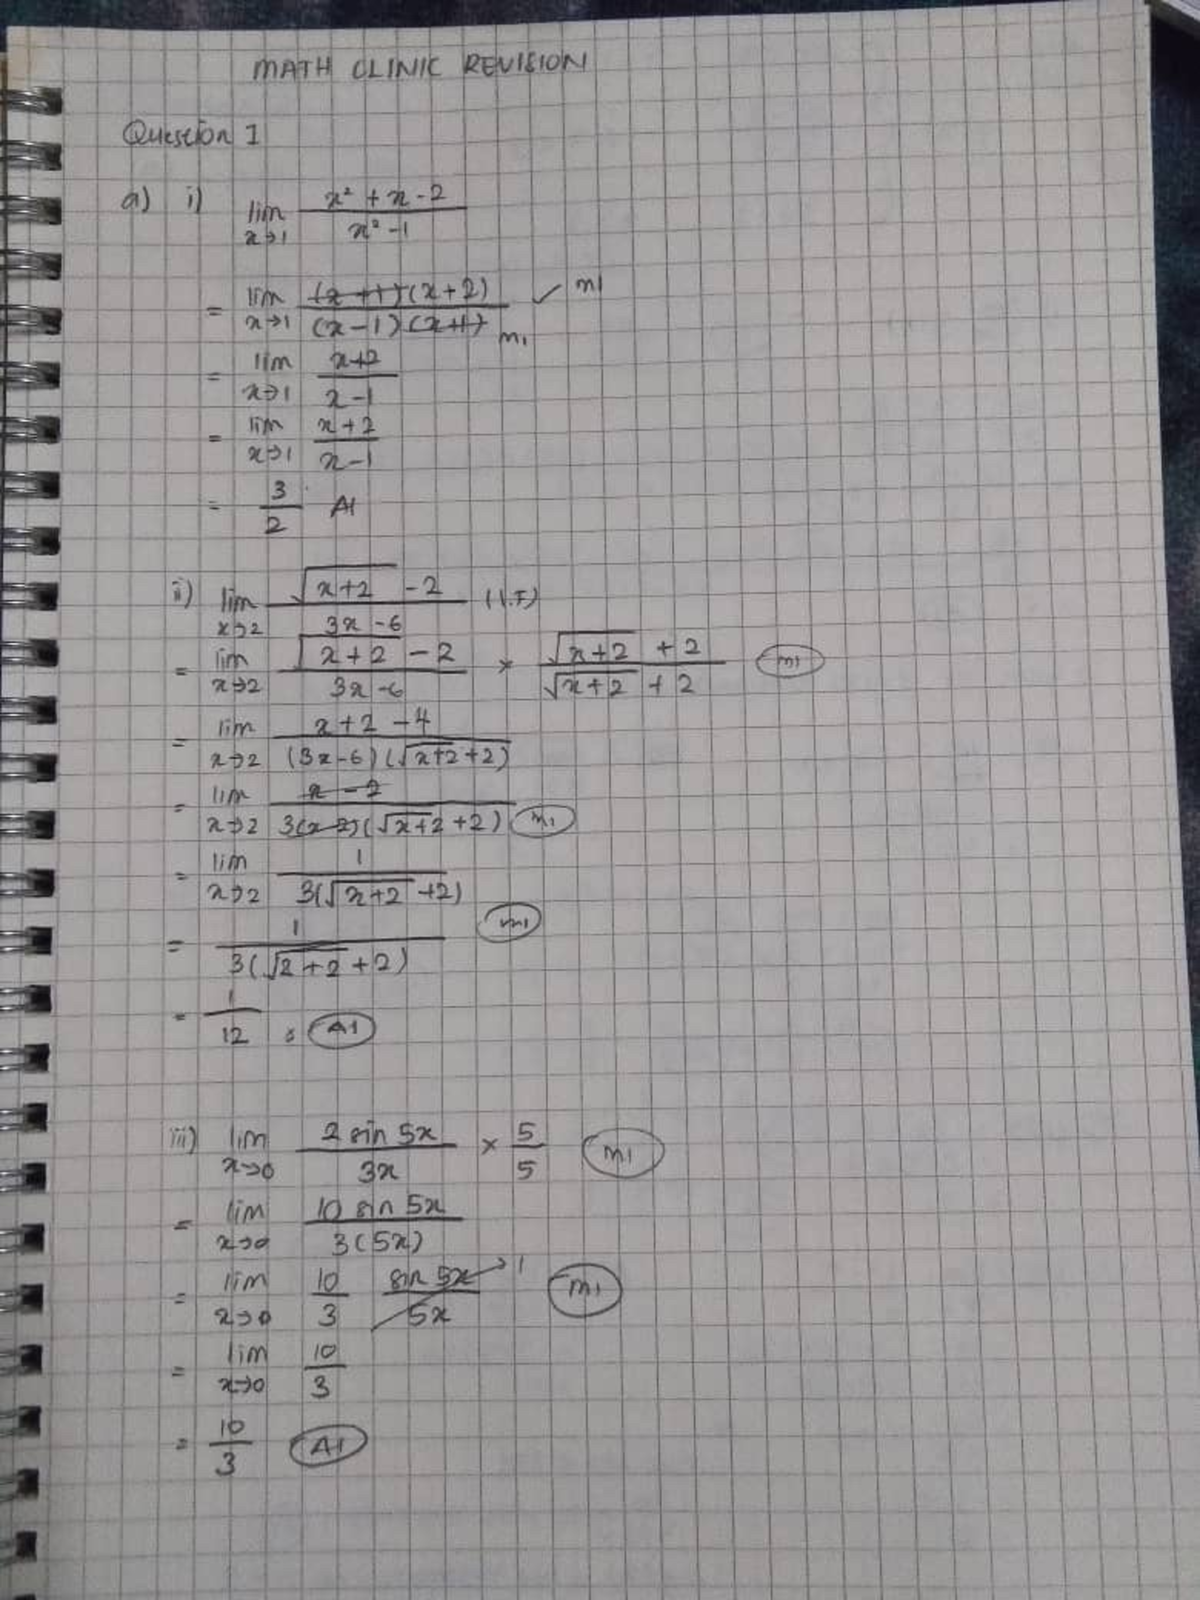 MATH CLINIC REVISION
Question 1
a) i) lim x→1 (x² + x - 2)/(x² - 1)
= lim x→1 (x + 1)(x + 2)/(x - 1)(x + 1) ✓ m1 m1
= lim x→1 (x+2)/(x - 1)
= lim x→1 (x + 2)/(x - 1)
= 3/2 A1
ii) lim x→2 (√(x+2) - 2)/(3x - 6) (I.F)
= lim x→2 (√(x+2) - 2)/(3x - 6) × (√(x+2) + 2)/(√(x+2) + 2) m1
= lim x→2 (x + 2 - 4)/((3x - 6)(√(x+2) + 2))
= lim x→2 (x - 2)/(3(x - 2)(√(x+2) + 2)) m1
= lim x→2 1/(3(√(x+2) + 2))
= 1/(3(√(2+2) + 2)) m1
= 1/12 A1
iii) lim x→0 (2 sin 5x)/(3x) × 5/5 m1
= lim x→0 (10 sin 5x)/(3(5x))
= lim x→0 10/3 (sin 5x)/(5x) → 1 m1
= lim x→0 10/3
= 10/3 A1